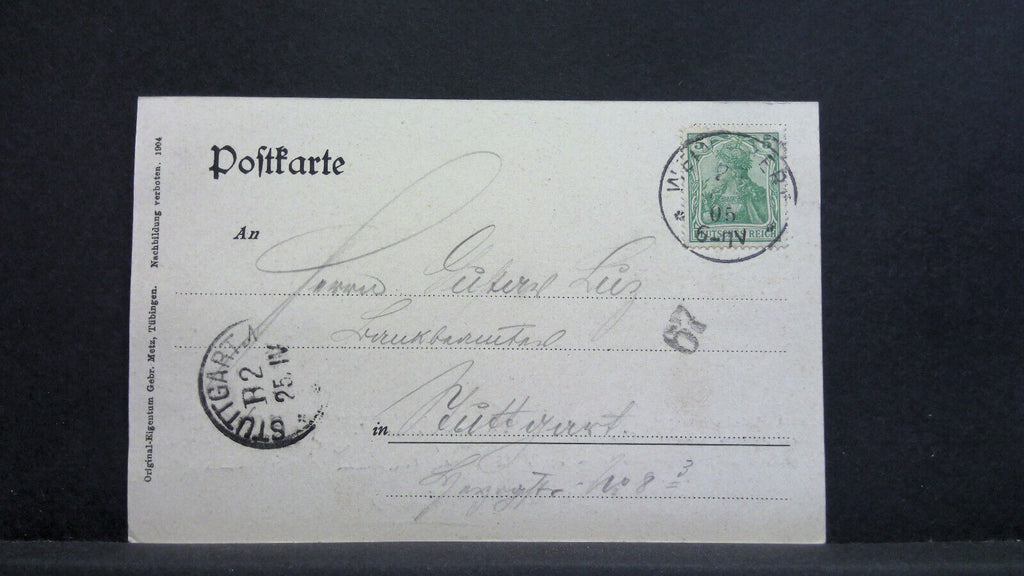 Postkarte
An
Herrn Gustav Luz
Bankbeamter
in Stuttgart.
No 8 3
Original-Eigentum Gebr. Metz, Tübingen. Nachbildung verboten. 1904
STUTTGART
B2
25.IV
05
6-7N
DEUTSCHES REICH
67